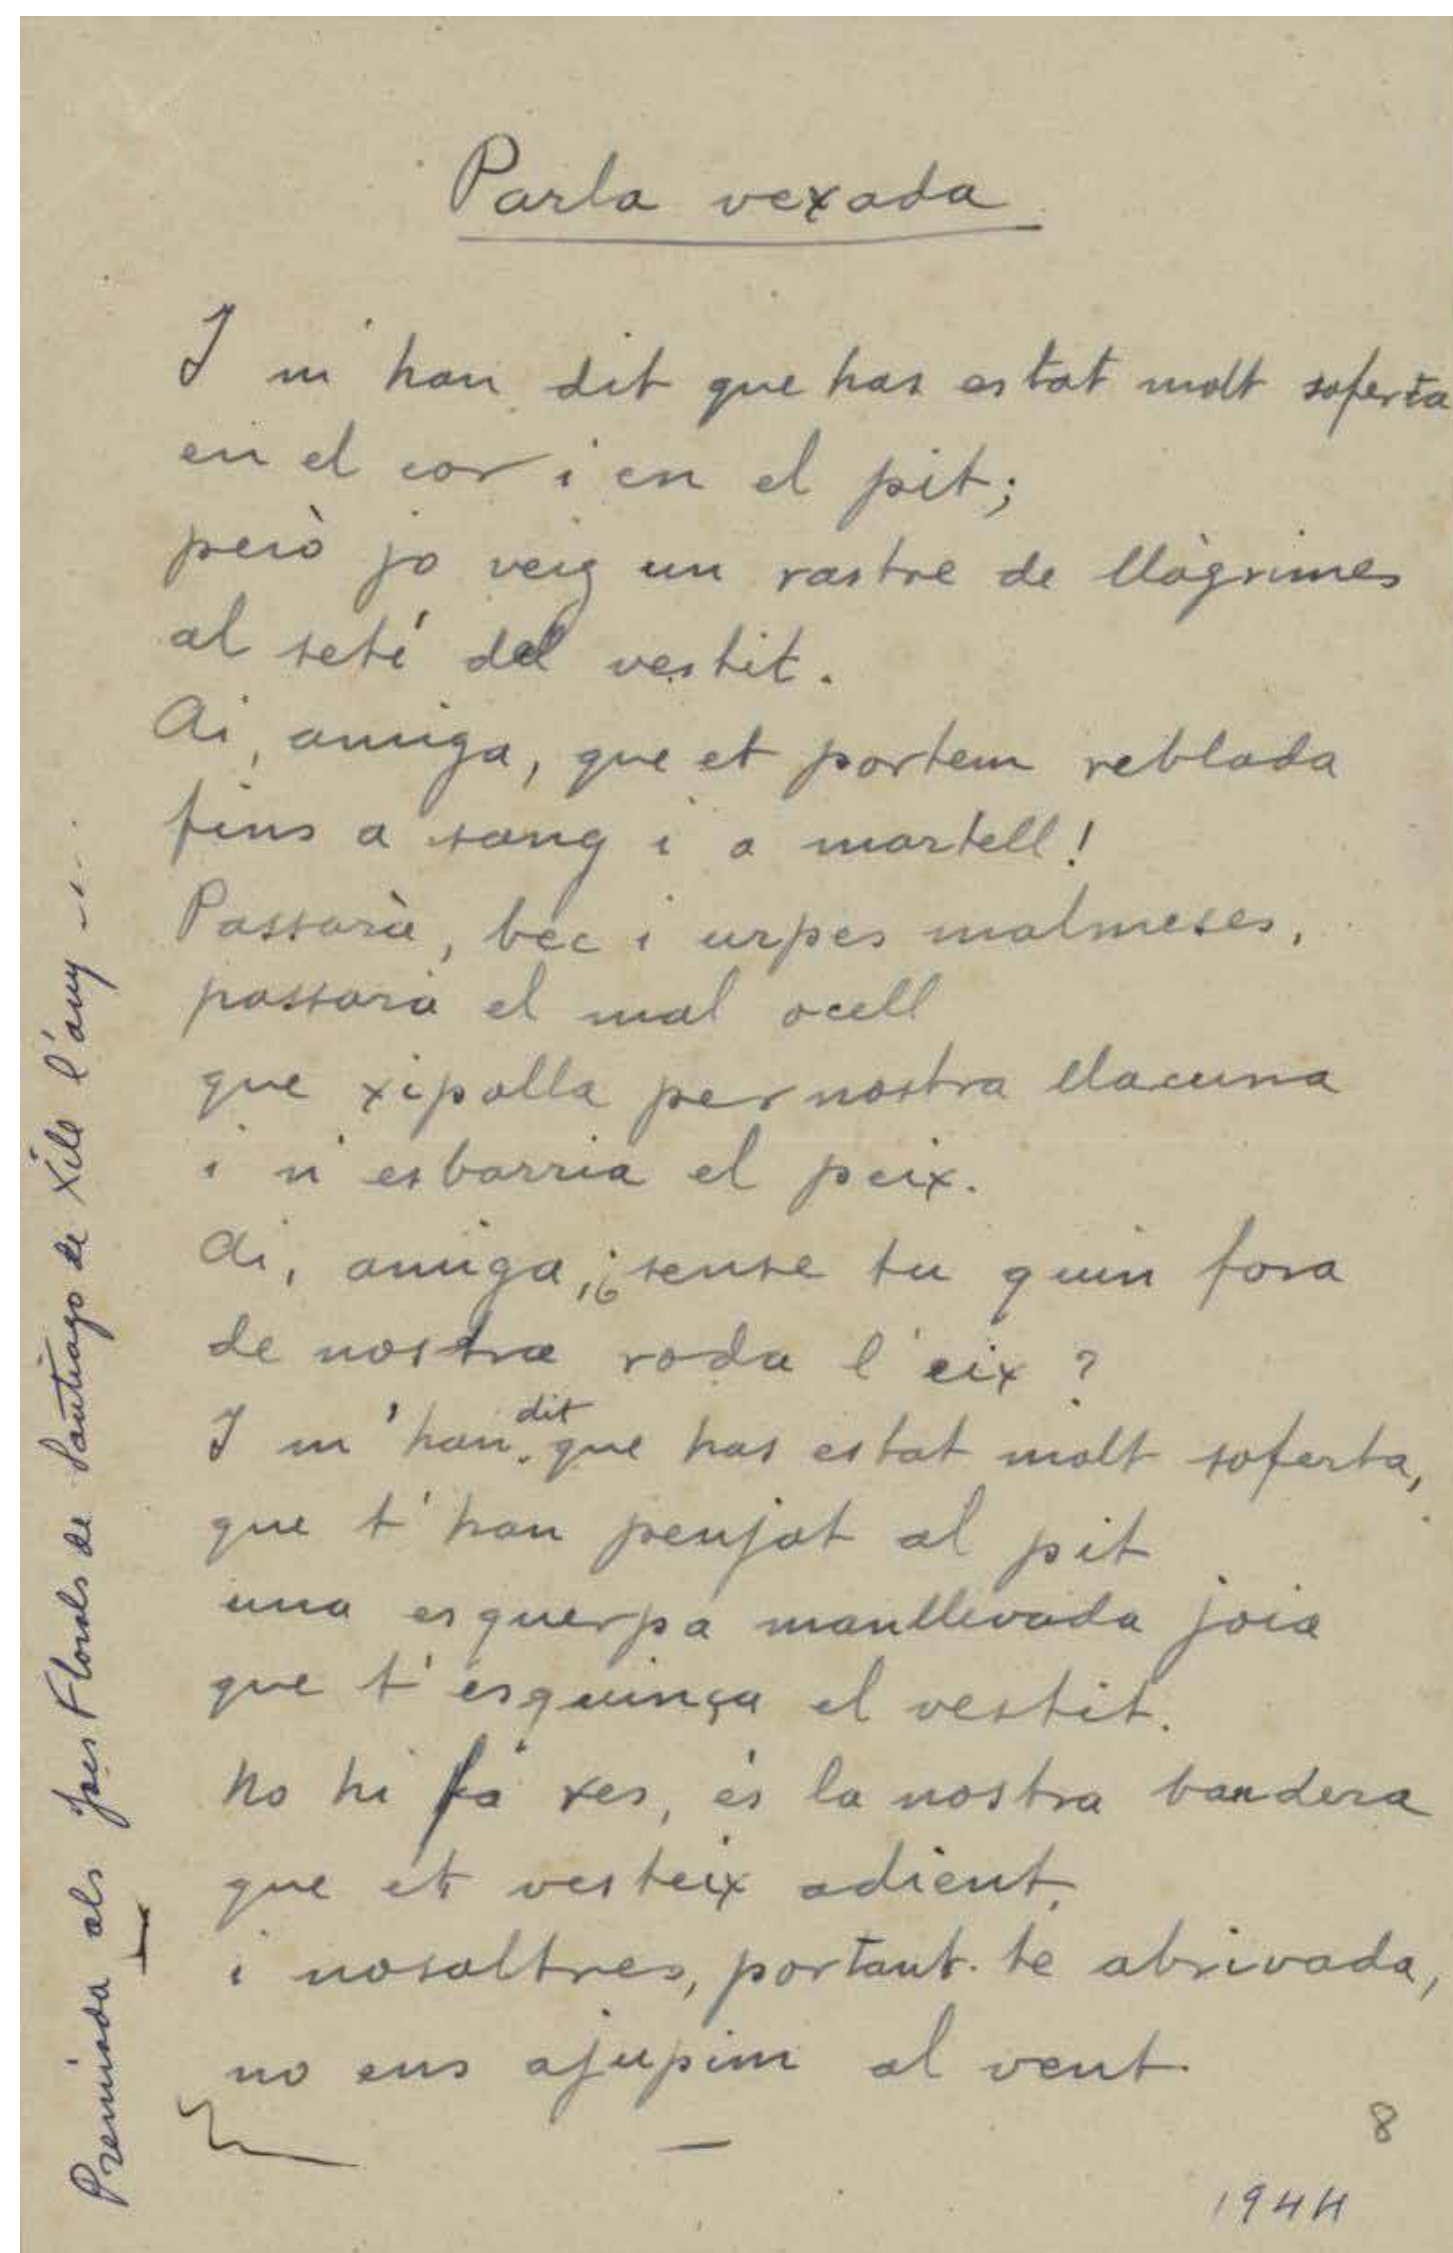 Parla vexada
I m'han dit que has estat molt soferta
en el cor i en el pit;
però jo veig un rastre de llàgrimes
al setí del vestit.
Ai, amiga, que et portem reblada
fins a sang i a martell!
Passarà, bec i urpes malmeses,
passarà el mal ocell
que xipolla per nostra llacuna
i n'esbarria el peix.
Ai, amiga, ¿sense tu quin fora
de nostra roda l'eix?
I m'han dit que has estat molt soferta,
que t'han penjat al pit
una esquerpa manllevada joia
que t'esquinça el vestit.
No hi fa res, és la nostra bandera
que et vesteix adient,
i nosaltres, portant-te abrivada,
no ens ajupim al vent.
8
1944
Premiada als Jocs Florals de Santiago de Xile l'any